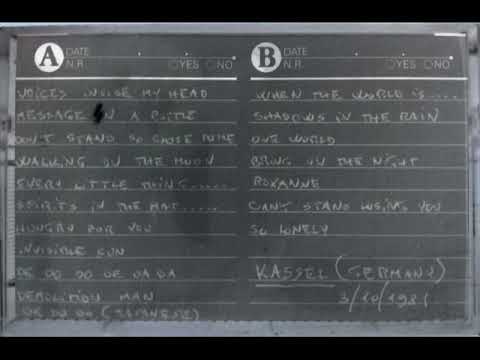 A DATE
N.R. YES NO
VOICES INSIDE MY HEAD
MESSAGE IN A BOTTLE
DON'T STAND SO CLOSE TO ME
WALKING ON THE MOON
EVERY LITTLE THING......
SPIRITS IN THE MAT.....
HUNGRY FOR YOU
INVISIBLE SUN
DE DO DO DE DA DA
DEMOLITION MAN
DE DO DO (JAPANESE)
B DATE
N.R. YES NO
WHEN THE WORLD IS.....
SHADOWS IN THE RAIN
ONE WORLD
BRING ON THE NIGHT
ROXANNE
CAN'T STAND LOSING YOU
SO LONELY
KASSEL (GERMANY)
3/10/1981